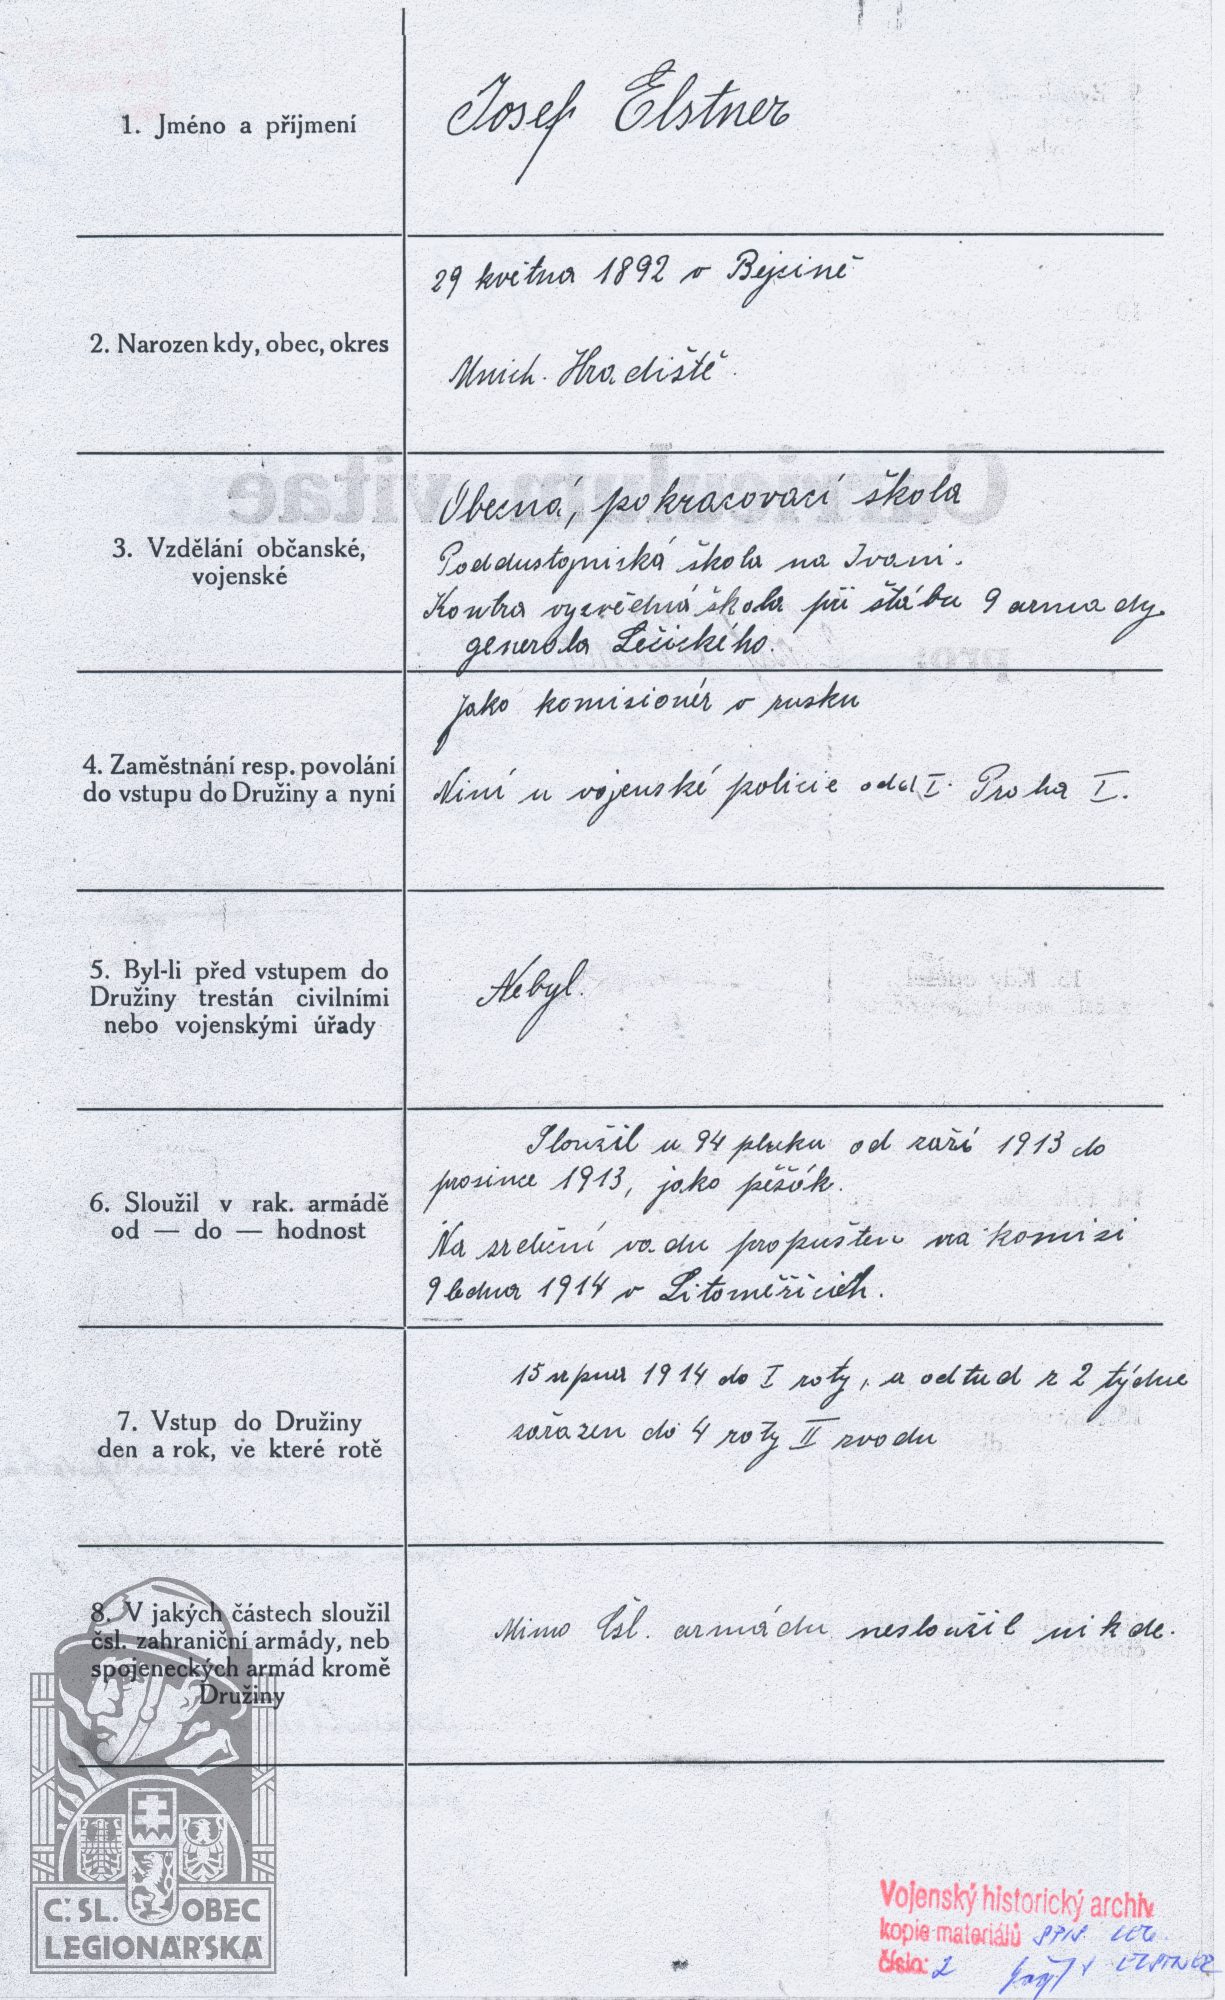 1. Jméno a příjmení
Josef Elstner
2. Narozen kdy, obec, okres
29 května 1892 v Bejcině
Mnich. Hradiště.
3. Vzdělání občanské,
vojenské
Obecná, pokracovací škola
Poddustojniská škola na Ivani.
Kontra vyzvědná škola při štábu 9 armady.
generala Lečického.
4. Zaměstnání resp. povolání
do vstupu do Družiny a nyní
Jako komisionér v rusku
Niní u vojenské policie odd I. Praha I.
5. Byl-li před vstupem do
Družiny trestán civilními
nebo vojenskými úřady
Nebyl.
6. Sloužil v rak. armádě
od — do — hodnost
Sloužil u 94 pluku od zaří 1913 do
prosince 1913, jako pěšák.
Na srdeční vadu propušten na komisi
9 ledna 1914 v Litoměřicích.
7. Vstup do Družiny
den a rok, ve které rotě
15 srpna 1914 do I roty, a odtud z 2 týdne
zařazen do 4 roty II zvodu
8. V jakých částech sloužil
čsl. zahraniční armády, neb
spojeneckých armád kromě
Družiny
Mimo Čsl. armádu nesloužil nikde.
Č. SL. OBEC
LEGIONÁŘSKÁ
Vojenský historický archiv
kopie materiálů
číslo: 2 ELSTNER
Curriculum vitae
pro: